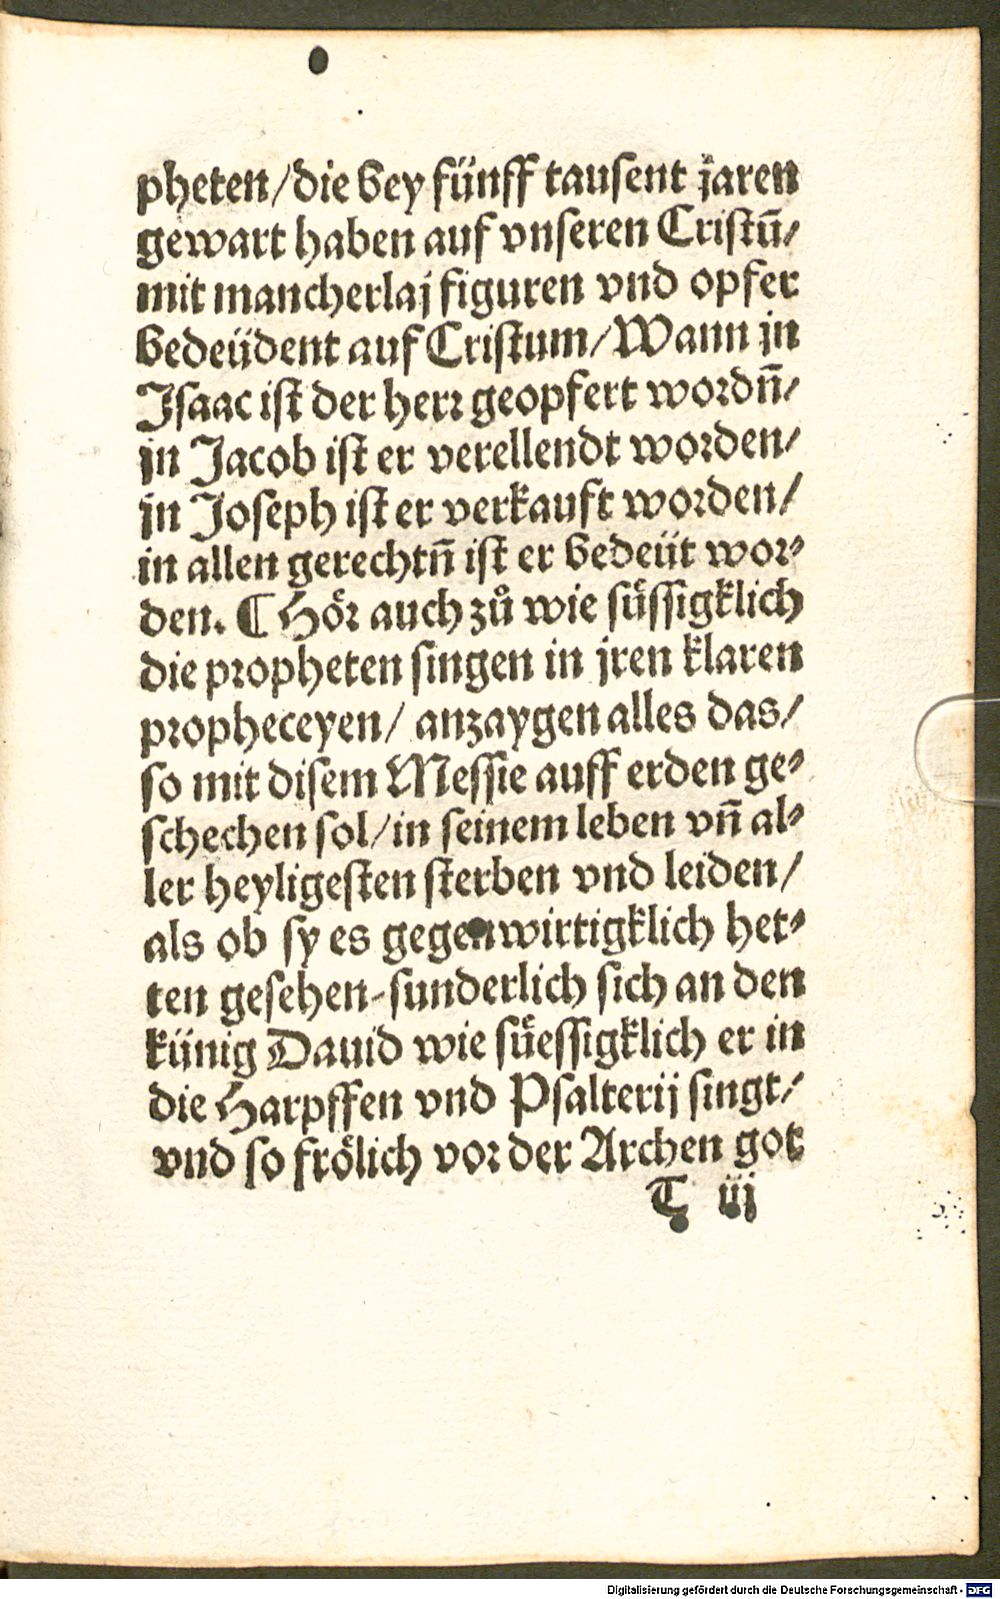 pheten/die bey fünff tausent jaren
gewart haben auf vnseren Cristū/
mit mancherlaj figuren vnd opfer
bedeüdent auf Cristum/Wann jn
Jsaac ist der herr geopfert wordn̄/
jn Jacob ist er verellendt worden/
jn Joseph ist er verkauft worden/
in allen gerechtn̄ ist er bedeüt wor-
den. ¶ Hör auch zů wie süssigklich
die propheten singen in jren klaren
propheceyen/ anzaygen alles das/
so mit disem Messie auff erden ge-
schechen sol/in seinem leben vn̄ al-
ler heyligesten sterben vnd leiden/
als ob sy es gegenwirtigklich het-
ten gesehen-sunderlich sich an den
künig Dauid wie süessigklich er in
die Harpffen vnd Psalterij singt/
vnd so frölich vor der Archen got
T iij
Digitalisierung gefördert durch die Deutsche Forschungsgemeinschaft - DFG